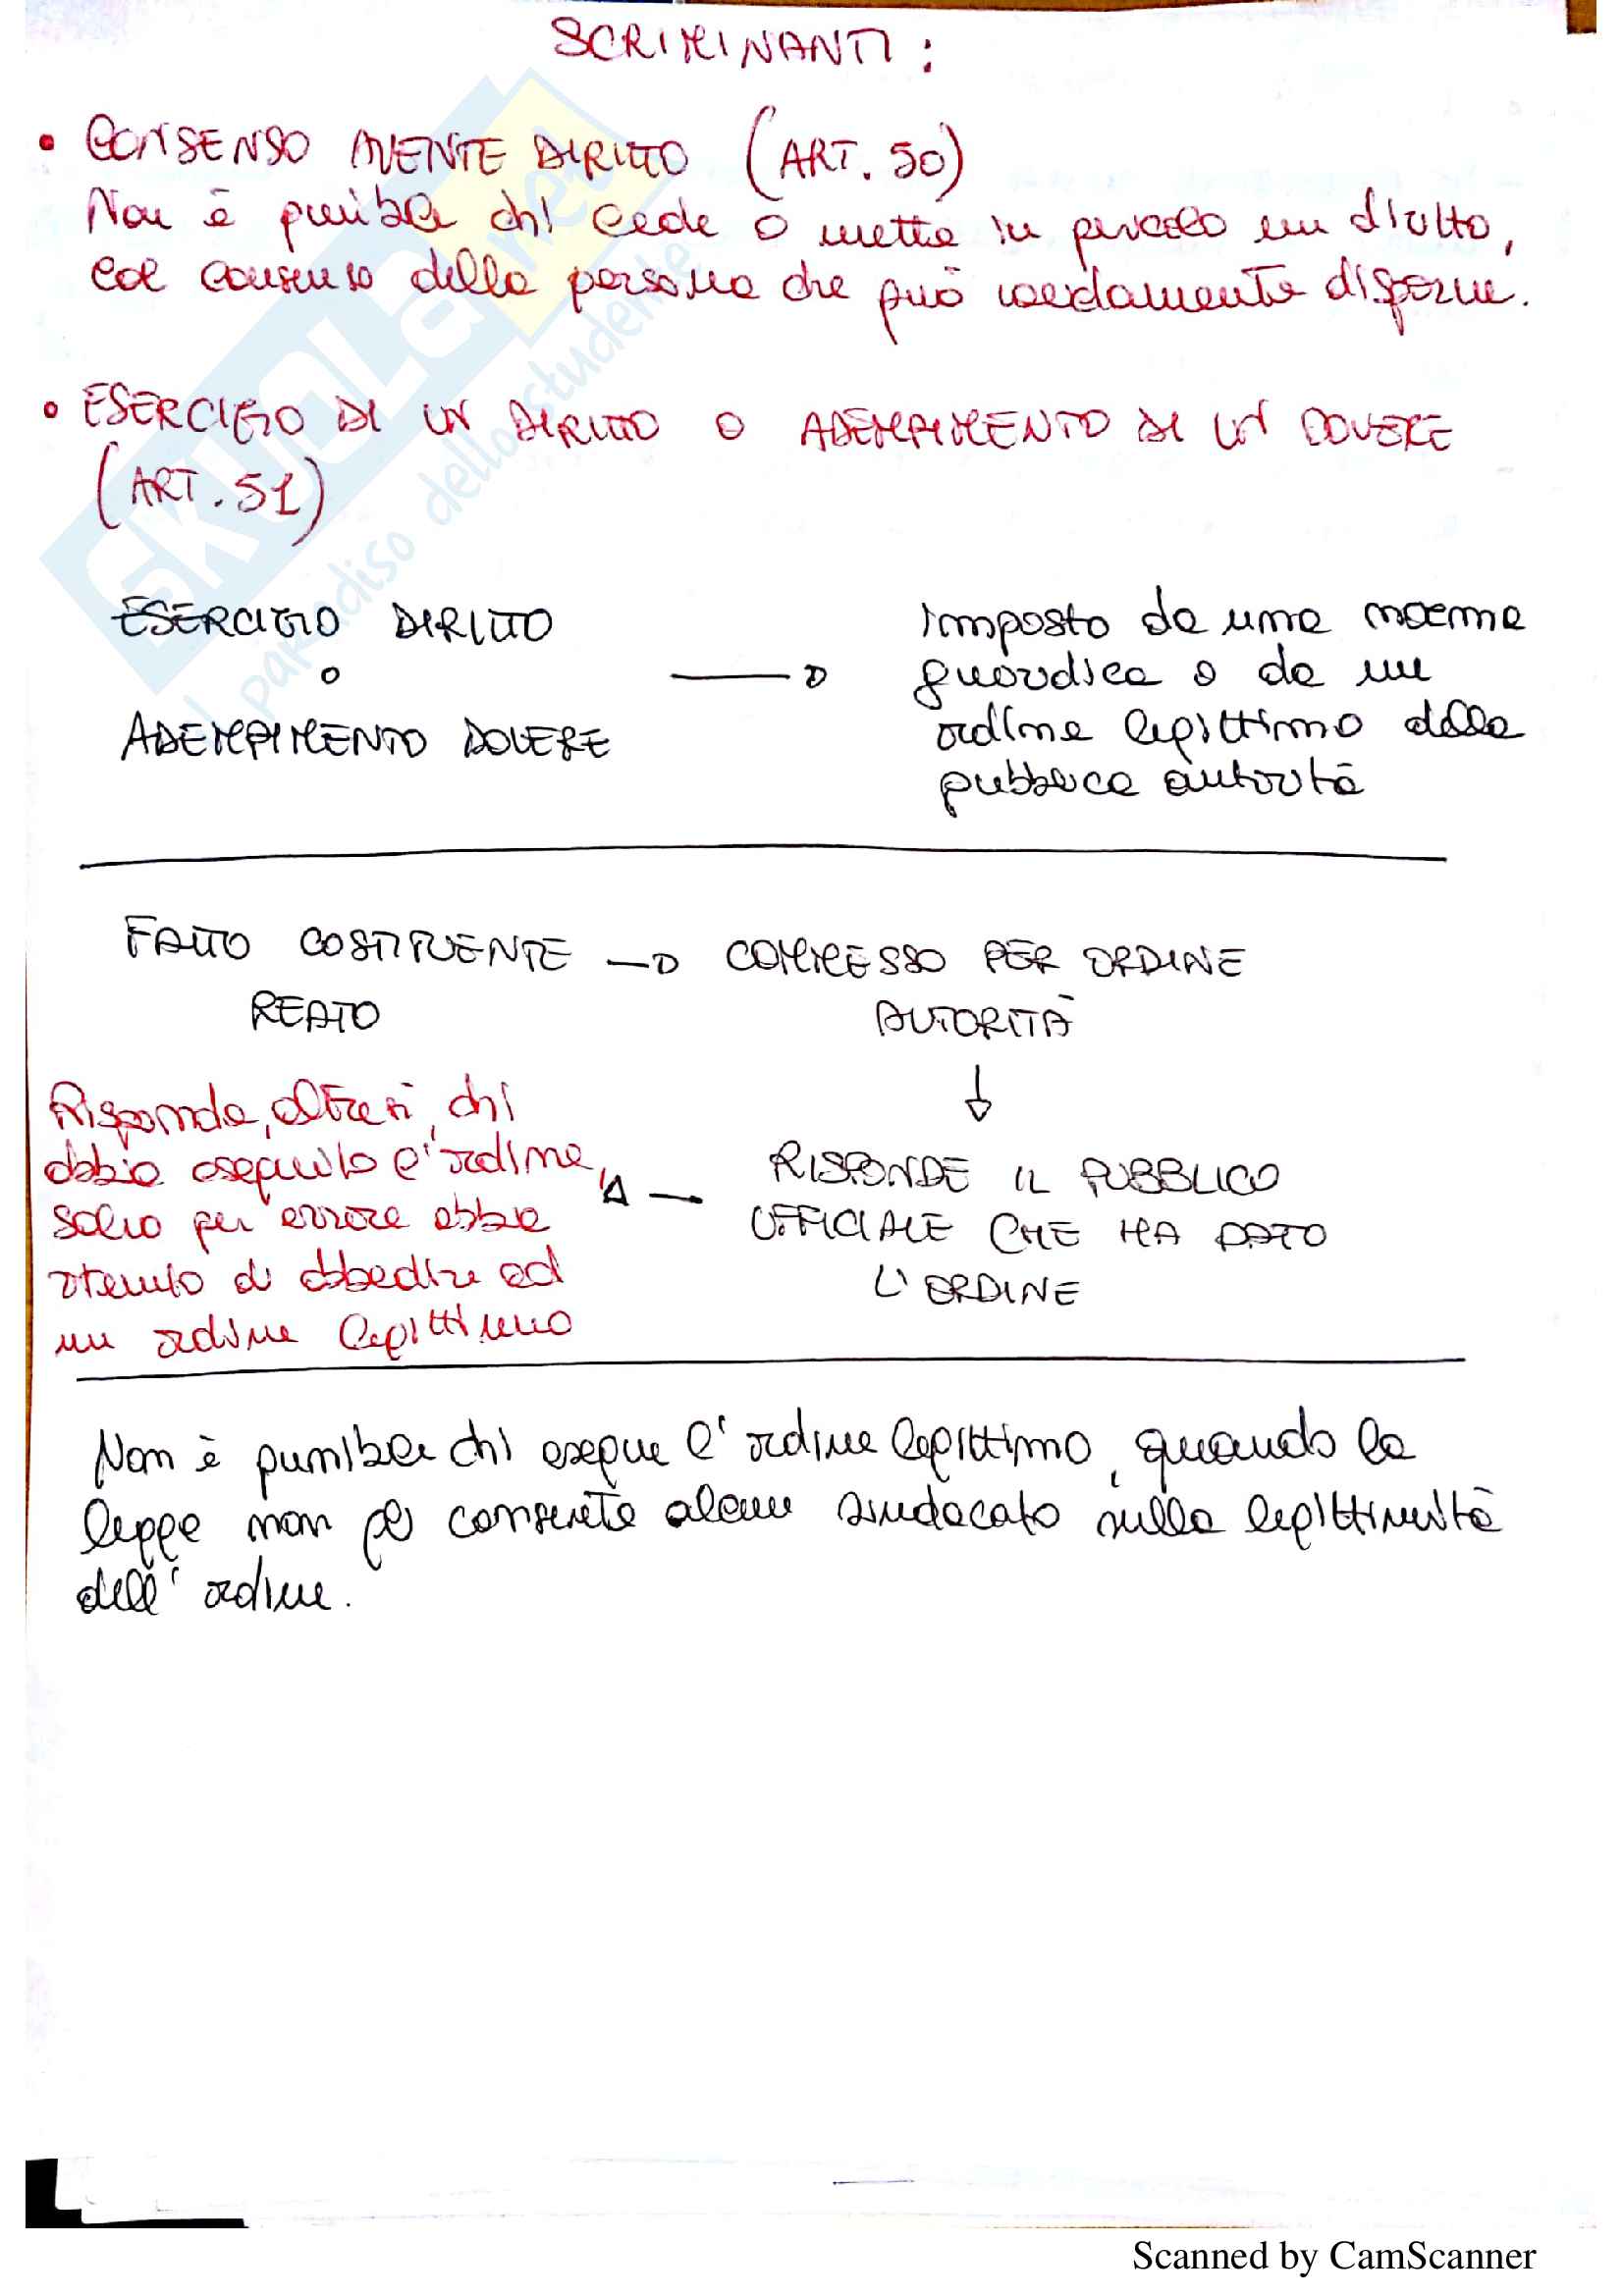 SCRIMINANTI:
• CONSENSO AVENTE DIRITTO (ART. 50)
Non è punibile chi lede o mette in pericolo un diritto,
col consenso della persona che può validamente disporne.
• ESERCIZIO DI UN DIRITTO O ADEMPIMENTO DI UN DOVERE
(ART. 51)
ESERCIZIO DIRITTO
O
ADEMPIMENTO DOVERE
imposto da una norma
giuridica o da un
ordine legittimo della
pubblica autorità
FATTO COSTITUENTE
REATO
COMMESSO PER ORDINE
AUTORITÀ
RISPONDE IL PUBBLICO
UFFICIALE CHE HA DATO
L'ORDINE
Risponde, altresì, chi
abbia eseguito l'ordine,
salvo per errore abbia
ritenuto di obbedire ad
un ordine legittimo
Non è punibile chi esegue l'ordine legittimo, quando la
legge non gli consente alcun sindacato sulla legittimità
dell'ordine.
SKUOLA.net
il paradiso dello studente
Scanned by CamScanner